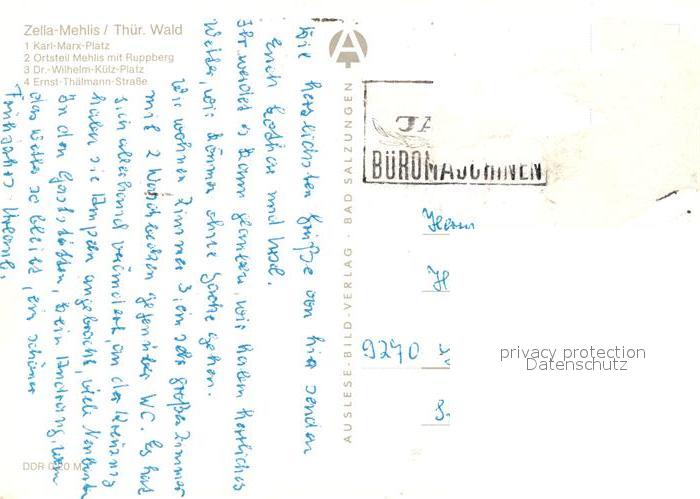 Zella-Mehlis / Thür. Wald
1 Karl-Marx-Platz
2 Ortsteil Mehlis mit Ruppberg
3 Dr.-Wilhelm-Külz-Platz
4 Ernst-Thälmann-Straße
Die herzlichsten Grüße von hier senden
Euch Lothar und
Ihr werdet es kaum glauben, wir haben herrliches
Wetter, wir können ohne Jacke gehen.
Wir wohnen Zimmer 3, ein sehr großes Zimmer
mit 2 Waschbecken gegenüber WC. Es hat
sich allerhand verändert, an der Kreuzung
haben sie Ampeln angebracht, viele Neubauten
In den Gaststätten, ein Andrang, wenn
das Wetter so bleibt, ein schöner
DDR 0,20 M
AUSLESE-BILD-VERLAG · BAD SALZUNGEN
BÜROMASCHINEN
Herrn
H
9270
privacy protection
Datenschutz